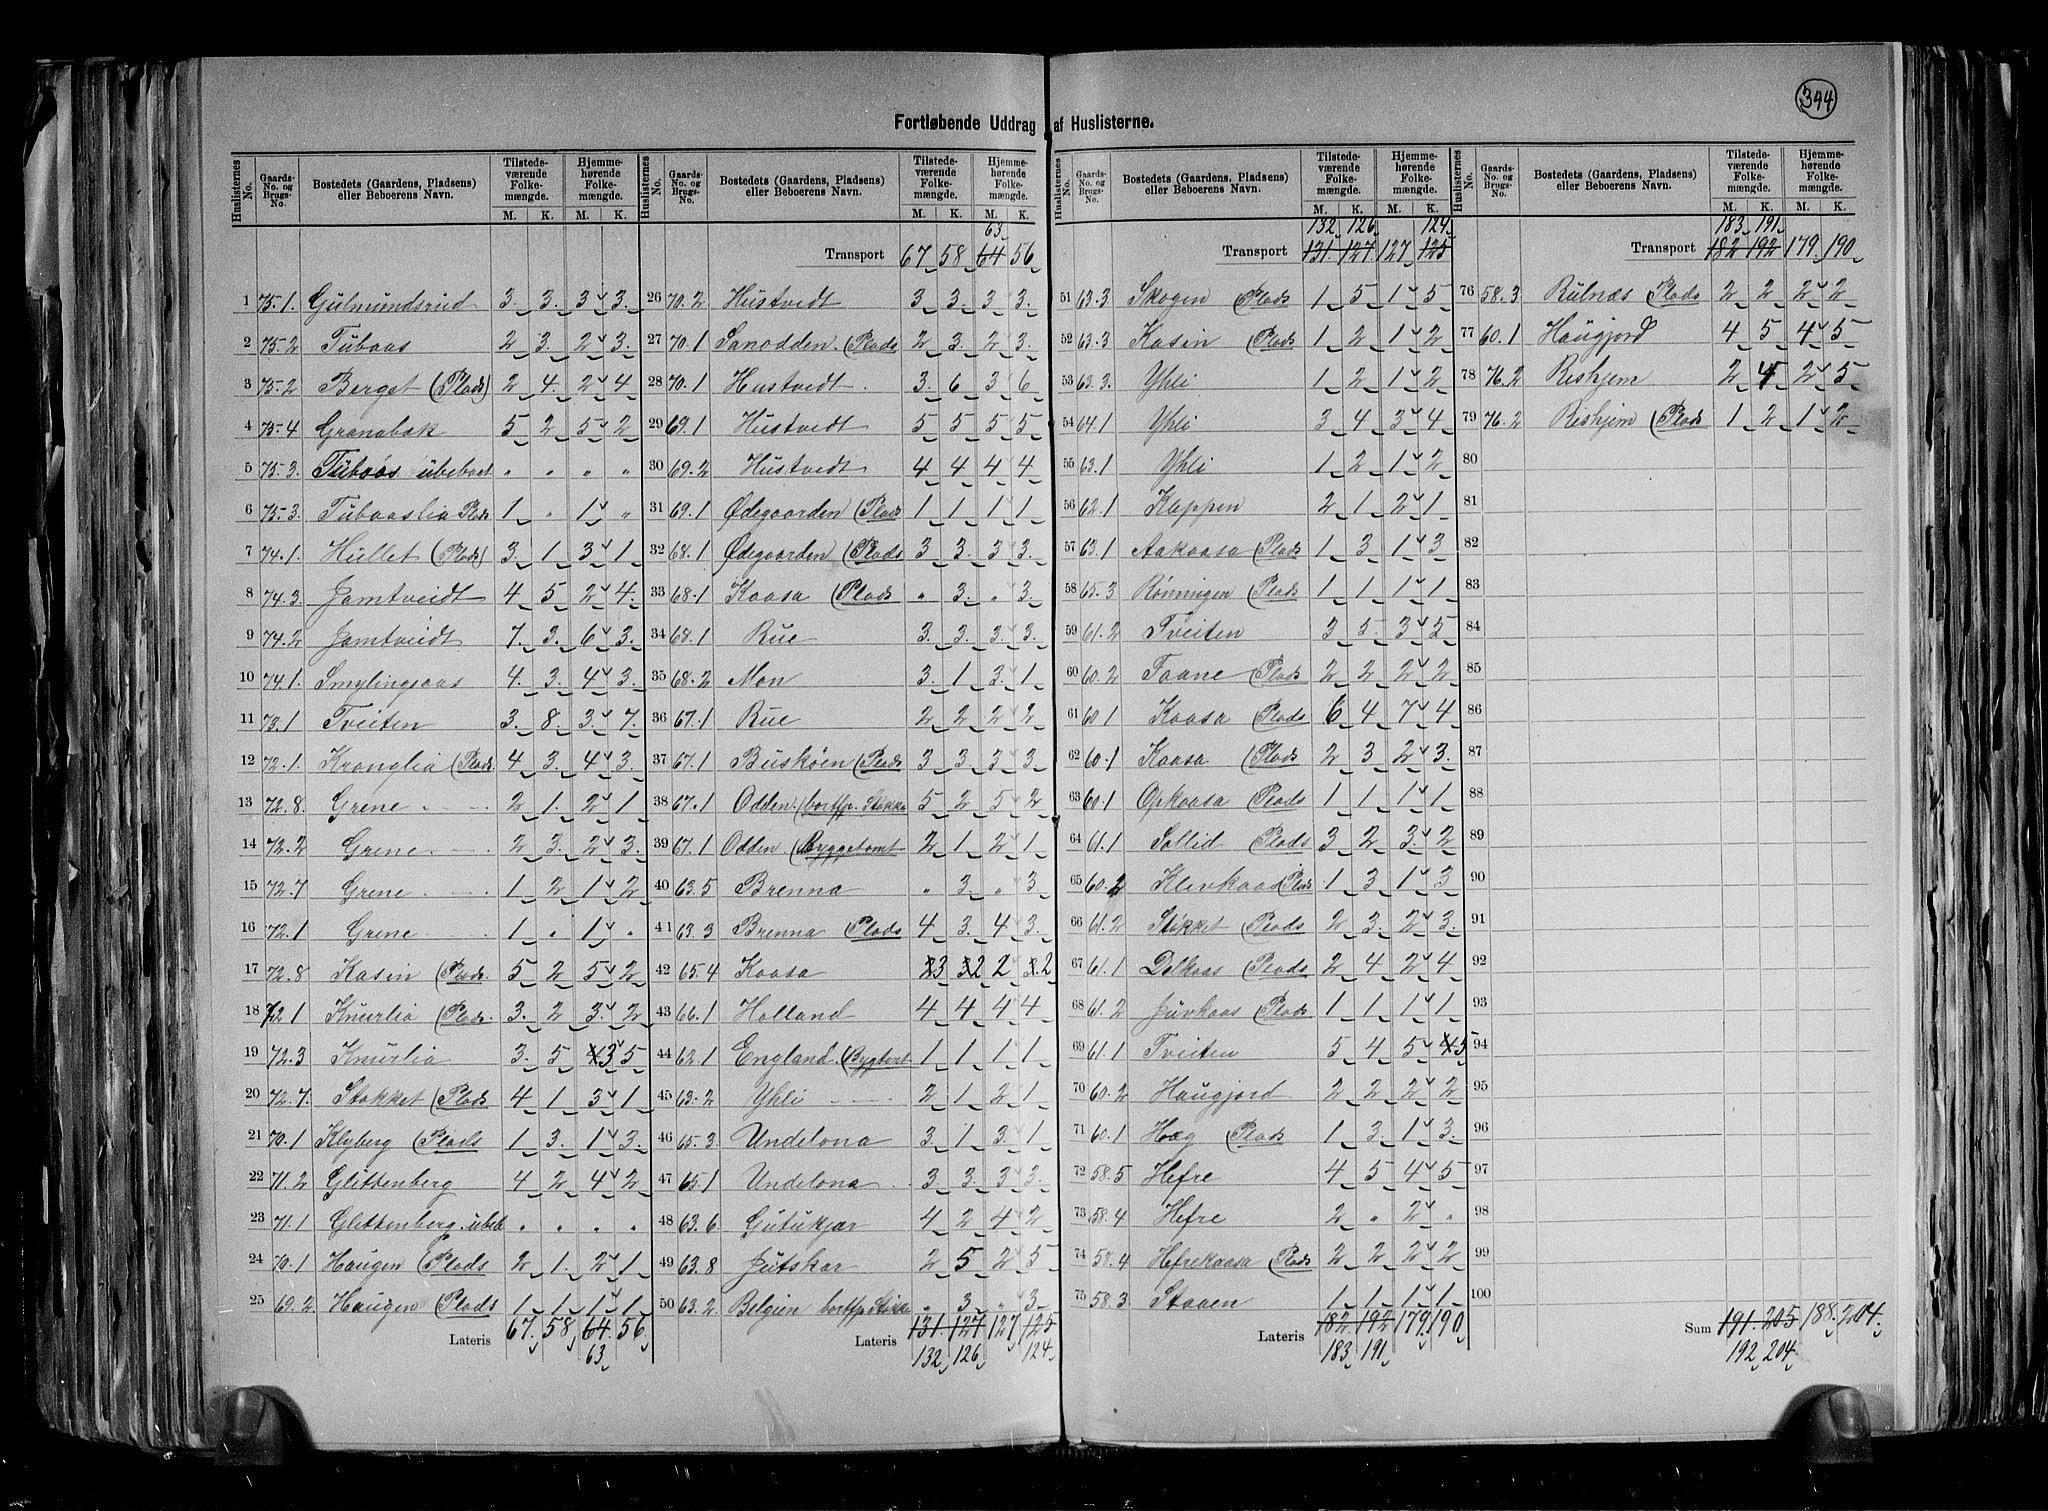 394
Fortløbende Uddrag af Huslisterne.
Huslisternes No. | Gaards-No. og Brugs-No. | Bostedets (Gaardens, Pladsens) eller Beboerens Navn. | Tilstedeværende Folkemængde. M. K. | Hjemmehørende Folkemængde. M. K.
1 75.1 Gulmundsrud 3 3 3 3
2 75.2 Tubaas 2 3 2 3
3 75.2 Berget (Plads) 2 4 2 4
4 75.4 Granabæk 5 2 5 2
5 75.3 Tubaas ubeboet " " " "
6 75.3 Tubaaslia Plads 1 " 1 "
7 74.1 Hullet (Plads) 3 1 3 1
8 74.3 Jamtveidt 4 5 2 4
9 74.2 Jamtveidt 7 3 6 3
10 74.1 Smylingsaas 4 3 4 3
11 73.1 Tveiten 3 8 3 7
12 72.1 Kranglia (Plads 4 3 4 3
13 72.8 Grene 2 1 2 1
14 72.2 Grene 2 3 2 3
15 72.7 Grene 1 2 1 2
16 72.1 Grene 1 " 1 "
17 72.8 Kasin (Plads 5 2 5 2
18 72.1 Knurlia (Plads 3 2 3 2
19 72.3 Knurlia 3 5 3 5
20 72.7 Stokket (Plads 4 1 3 1
21 70.1 Klyberg (Plads 1 3 1 3
22 71.2 Glittenberg 4 2 4 2
23 71.1 Glittenberg ubeb " " " "
24 70.1 Haugen (Plads 2 1 2 1
25 69.2 Haugen (Plads 1 1 1 1
Lateris 67 58 64 56
63
Huslisternes No. | Gaards-No. og Brugs-No. | Bostedets (Gaardens, Pladsens) eller Beboerens Navn. | Tilstedeværende Folkemængde. M. K. | Hjemmehørende Folkemængde. M. K.
63
Transport 67 58 64 56
26 70.2 Hustvedt 3 3 3 3
27 70.1 Sanodden (Plads 2 3 2 3
28 70.1 Hustvedt 3 6 3 6
29 69.1 Hustvedt 5 5 5 5
30 69.2 Hustvedt 4 4 4 4
31 69.1 Ødegaarden (Plads 1 1 1 1
32 68.1 Ødegaarden (Plads 3 3 3 3
33 68.1 Kaasa (Plads " 3 " 3
34 68.1 Rue 3 3 3 3
35 68.2 Mon 3 1 3 1
36 67.1 Rue 2 2 2 2
37 67.1 Buskøen (Plads 3 3 3 3
38 67.1 Odden (bortfp. Stokke 5 2 5 2
39 67.1 Odden (Byggetomt 2 1 2 1
40 63.5 Brenna " 3 " 3
41 63.3 Brenna (Plads 4 3 4 3
42 65.4 Kaasa 3 2 2 2
43 66.1 Holland 4 4 4 4
44 62.1 England (Bygtomt 1 1 1 1
45 63.2 Yhli 2 1 2 1
46 65.3 Undelona 3 1 3 1
47 65.1 Undelona 3 3 3 3
48 63.6 Gutukjær 4 2 4 2
49 63.8 Jutskar 2 5 2 5
50 63.2 Belgien bortfp Stokk " 3 " 3
Lateris 131 127 127 125
132 126 124
Huslisternes No. | Gaards-No. og Brugs-No. | Bostedets (Gaardens, Pladsens) eller Beboerens Navn. | Tilstedeværende Folkemængde. M. K. | Hjemmehørende Folkemængde. M. K.
132 126 124
Transport 131 127 127 125
51 63.3 Skogen (Plads 1 5 1 5
52 63.3 Kasin (Plads 1 2 1 2
53 63.3 Yhli 1 2 1 2
54 64.1 Yhli 3 4 3 4
55 63.1 Yhli 1 2 1 2
56 62.1 Kleppen 2 1 2 1
57 63.1 Aakaasa (Plads 1 3 1 3
58 65.3 Rønningen (Plads 1 1 1 1
59 61.2 Tveiten 3 5 3 5
60 60.2 Taane (Plads 2 2 2 2
61 60.1 Kaasa (Plads 6 4 7 4
62 60.1 Kaasa (Plads 2 3 2 3
63 60.1 Opkaasa (Plads 1 1 1 1
64 61.1 Sollid (Plads 3 2 3 2
65 60.2 Klevkaas (Plads 1 3 1 3
66 61.2 Støkket (Plads 2 3 2 3
67 61.1 Dalkaas (Plads 2 4 2 4
68 61.2 Juvkaas (Plads 1 1 1 1
69 61.1 Tveiten 5 4 5 5
70 60.2 Haugjord 2 2 2 2
71 60.1 Hæg (Plads 1 3 1 3
72 58.5 Hefre 4 5 4 5
73 58.4 Hefre 2 " 2 "
74 58.4 Hefrekaasa (Plads 2 2 2 2
75 58.3 Staaen 1 1 1 1
Lateris 182 192 179 190
183 191
Huslisternes No. | Gaards-No. og Brugs-No. | Bostedets (Gaardens, Pladsens) eller Beboerens Navn. | Tilstedeværende Folkemængde. M. K. | Hjemmehørende Folkemængde. M. K.
183 191
Transport 182 192 179 190
76 58.3 Rulnæs (Plads 2 2 2 2
77 60.1 Haugjord 4 5 4 5
78 76.2 Rishjem 2 4 2 5
79 76.2 Rishjem (Plads 1 2 1 2
80
81
82
83
84
85
86
87
88
89
90
91
92
93
94
95
96
97
98
99
100
Sum 191 205 188 204
192 204